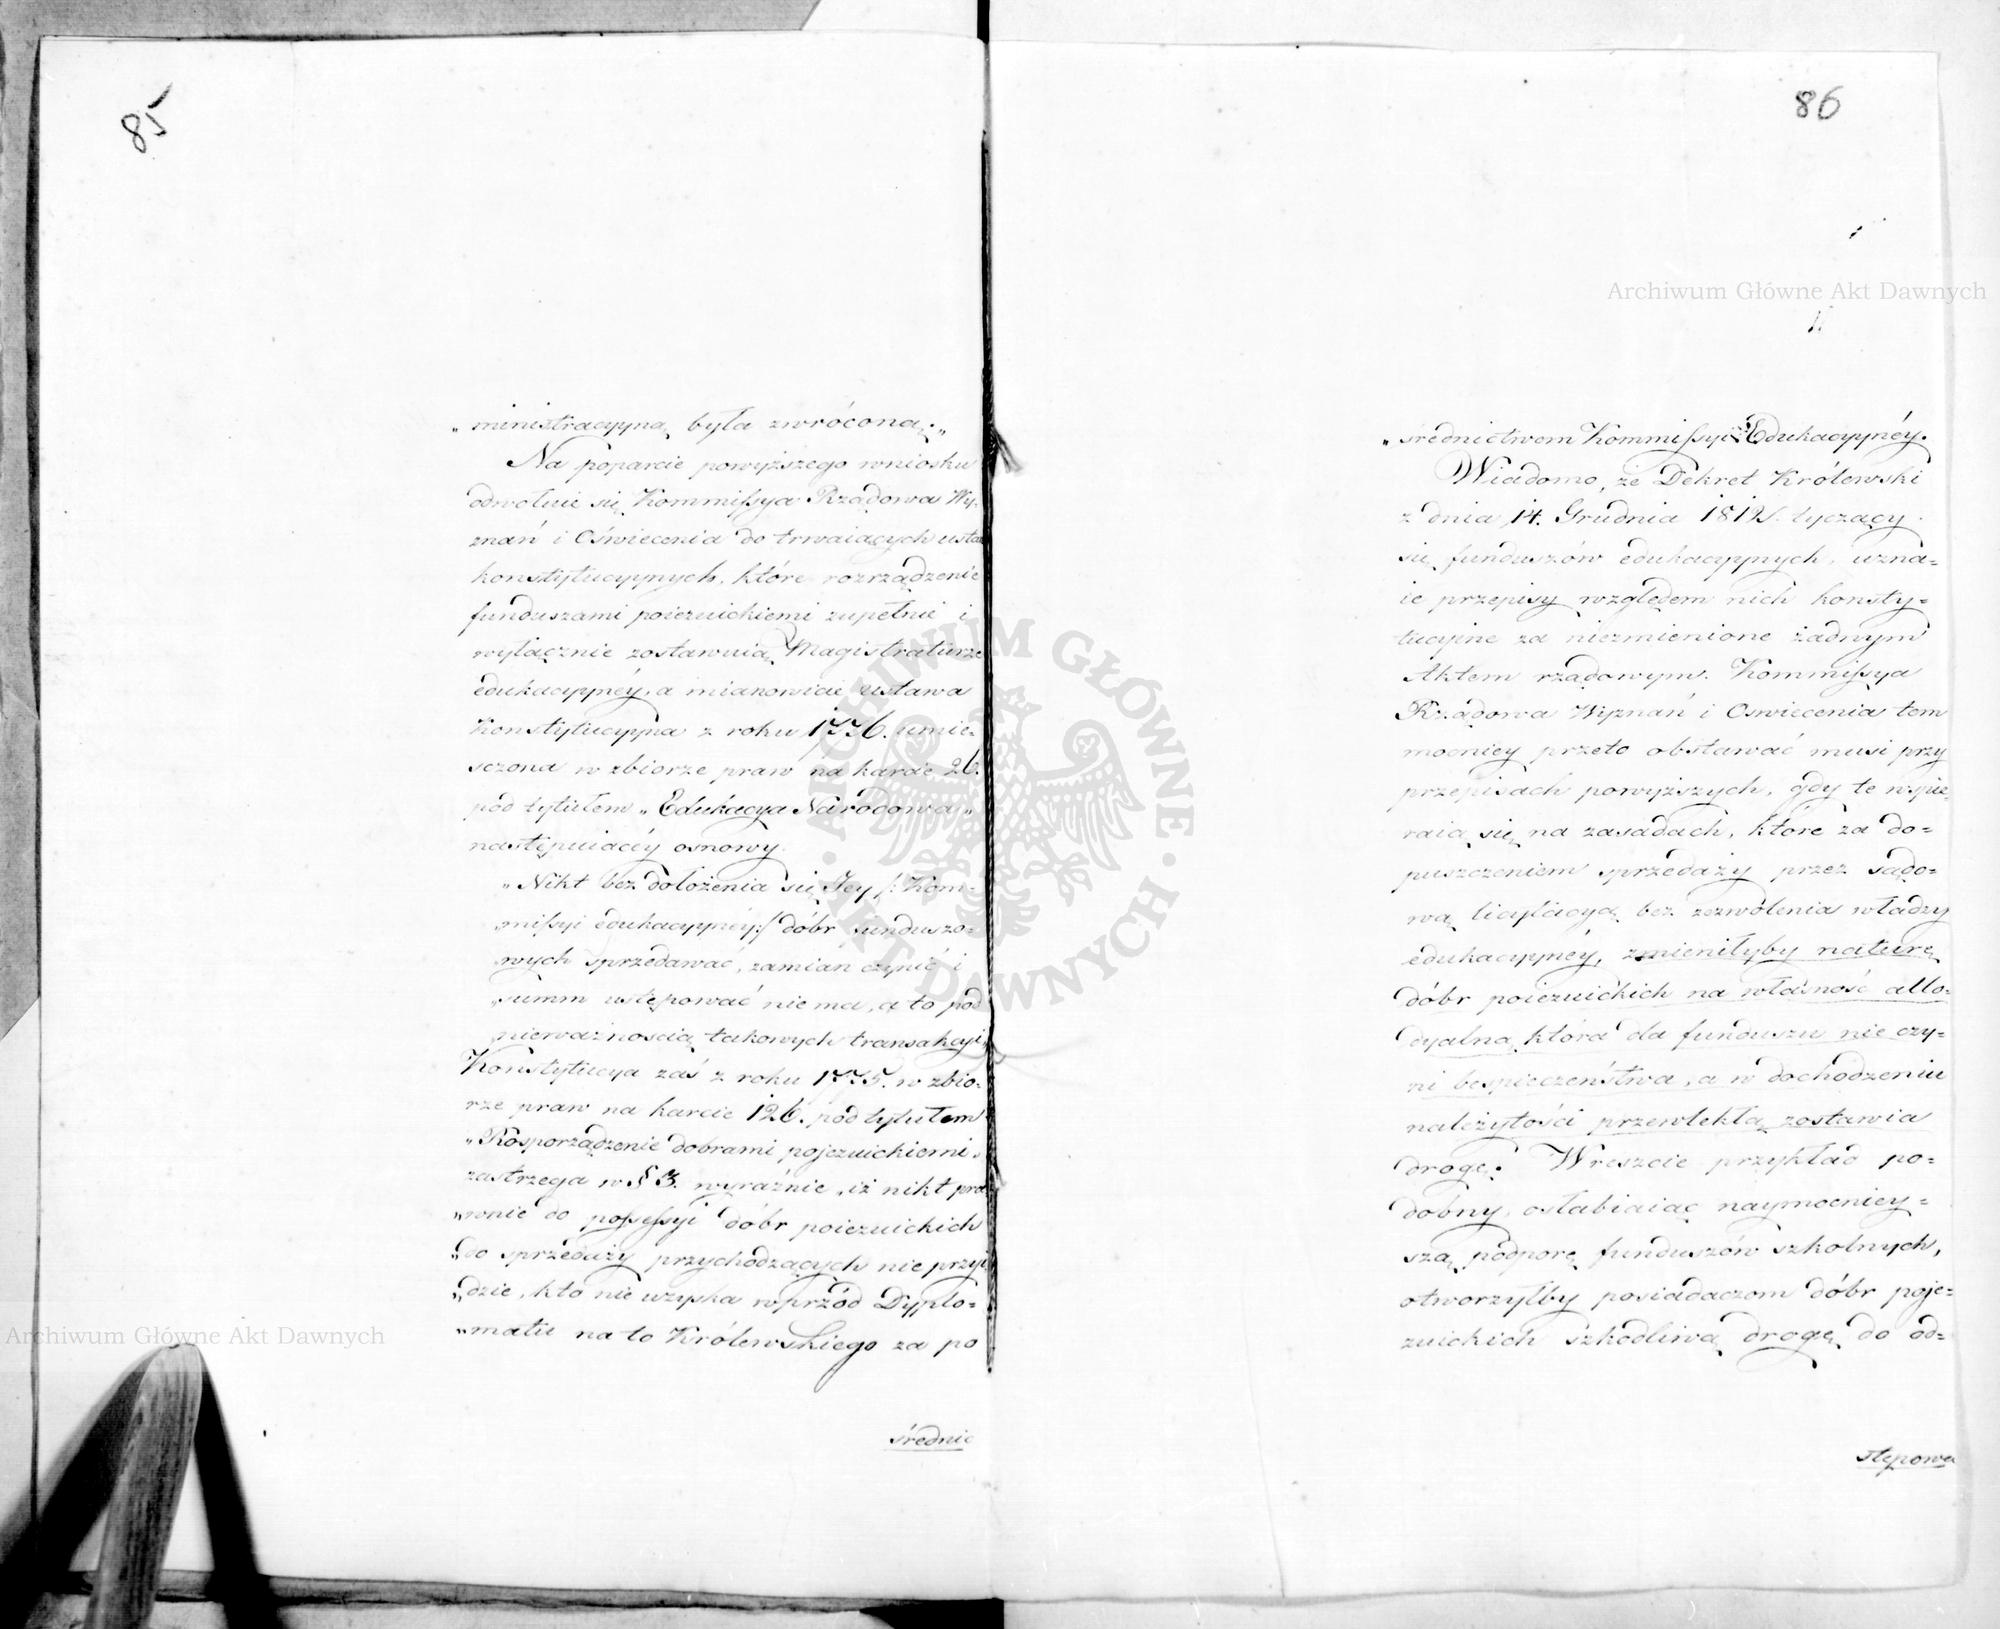 85
„ministracyyną była zwróconą.„
Na poparcie powyższego wniosku
odwołuie się Kommissya Rządowa Wy-
znań i Oświecenia do trwaiących usta
konstytucyynych, które rozrządzenie
funduszami poiezuickiemi zupełnie i
wyłącznie zostawuią Magistraturze
edukacyynéy, a mianowicie ustawa
Konstytucyyna z roku 1776. umie-
sczona w zbiorze praw na karcie 26.
pod tytułem „Edukacya Narodowa„
następuiącéy osnowy.
„Nikt bez dołożenia się Jey /: Kom-
„missyi edukacyynéy:/ dóbr funduszo-
„wych sprzedawać, zamian czynić i
„summ ustępować nie ma, a to pod
„nieważnością takowych transakcyi„
Konstytucya zaś z roku 1775. w zbio-
rze praw na karcie 126. pod tytułem
„Rosporządzenie dobrami pojezuickiemi„
zastrzega w § 3. wyraźnie, iż nikt pra
„wnie do possessyi dóbr poiezuickich
„do sprzedaży przychodzących nie przyi
„dzie, kto nie uzyska wprzód Dyplo-
„matu na to Królewskiego za po
średnic
86
„średnictwem Kommissyi Edukacyynéy.
Wiadomo, że Dekret Królewski
z dnia 14. Grudnia 1812 r. tyczący
się funduszów edukacyynych, uzna-
ie przepisy względem nich konsty-
tucyine za niezmienione żadnym
Aktem rządowym. Kommissya
Rządowa Wyznań i Oswiecenia tem
mocniey przeto obstawać musi przy
przepisach powyższych, gdy te wspie-
raią się na zasadach, które za do-
puszczeniem sprzedaży przez sądo-
wą licytacyą bez zezwolenia władzy
edukacyynéy, zmieniłyby naturę
dóbr poiezuickich na własność allo-
dyalną, która dla funduszu nie czy-
ni bespieczeństwa, a w dochodzeniu
należytości przewlekłą zostawia
drogę. Wreszcie przykład po-
dobny, osłabiaiąc naymocniey-
szą podporę funduszów szkolnych,
otworzyłby posiadaczom dóbr poje-
zuickich szkodliwą drogę do od-
stępowa
Archiwum Główne Akt Dawnych
Archiwum Główne Akt Dawnych
ARCHIWUM GŁÓWNE • AKT DAWNYCH •